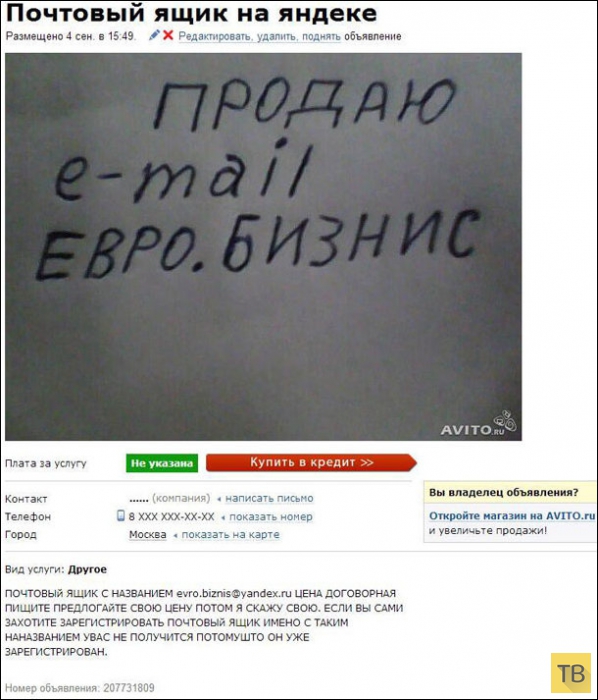 Почтовый ящик на яндеке
Размещено 4 сен. в 15:49. Редактировать, удалить, поднять объявление
ПРОДАЮ
e-mail
ЕВРО.БИЗНИС
AVITO.RU
Плата за услугу Не указана Купить в кредит >>
Контакт ...... (компания) написать письмо
Телефон 8 XXX XXX-XX-XX показать номер
Город Москва показать на карте
Вы владелец объявления?
Откройте магазин на AVITO.ru
и увеличьте продажи!
Вид услуги: Другое
ПОЧТОВЫЙ ЯЩИК С НАЗВАНИЕМ evro.biznis@yandex.ru ЦЕНА ДОГОВОРНАЯ
ПИЩИТЕ ПРЕДЛОГАЙТЕ СВОЮ ЦЕНУ ПОТОМ Я СКАЖУ СВОЮ. ЕСЛИ ВЫ САМИ
ЗАХОТИТЕ ЗАРЕГИСТРИРОВАТЬ ПОЧТОВЫЙ ЯЩИК ИМЕНО С ТАКИМ
НАНАЗВАНИЕМ УВАС НЕ ПОЛУЧИТСЯ ПОТОМУШТО ОН УЖЕ
ЗАРЕГИСТРИРОВАН.
Номер объявления: 207731809
ТВ